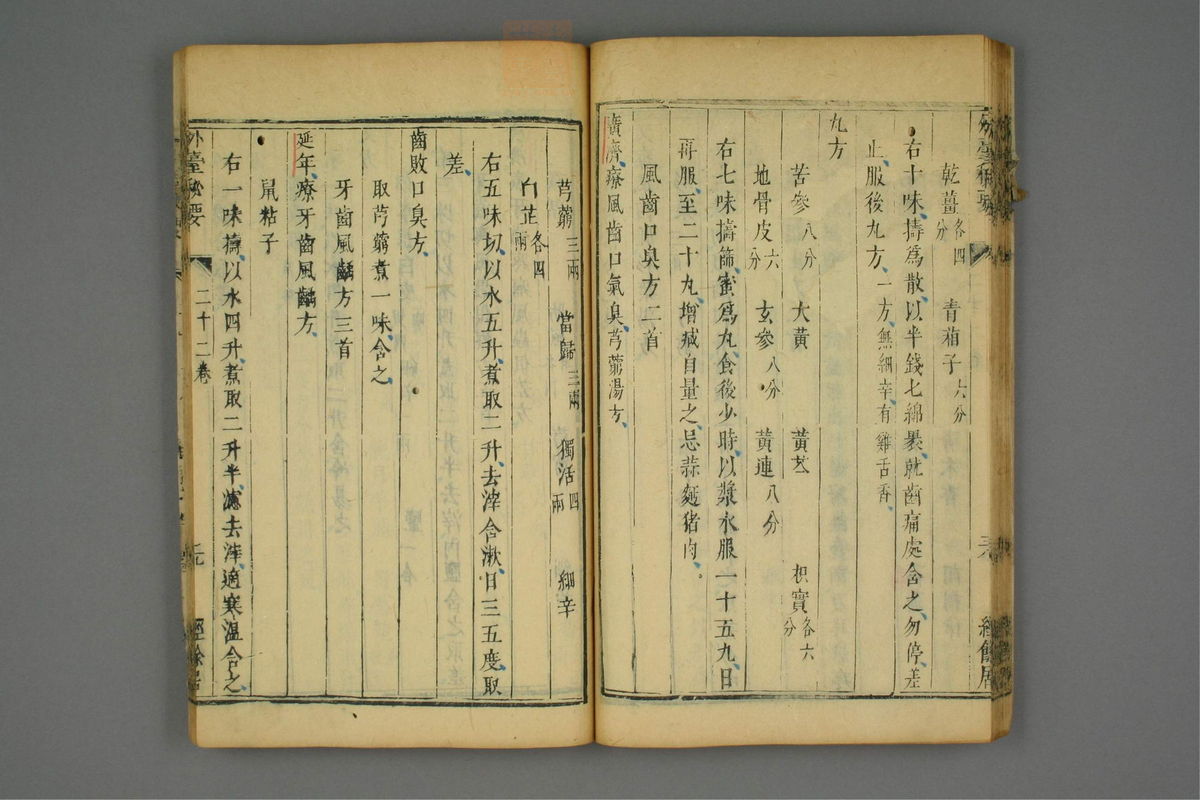 乾薑各四分 青葙子六分
右十味擣爲散以半錢匕綿裹就齒痛處含之勿停差
止服後丸方一方無細辛有雞舌香
丸方
苦參八分 大黃 黃芩 枳實各六分
地骨皮六分 玄參八分 黃連八分
右七味擣篩蜜爲丸食後少時以漿水服一十五丸日
再服至二十丸增減自量之忌蒜麵猪肉
風齒口臭方二首
廣濟療風齒口氣臭芎藭湯方
芎藭三兩 當歸三兩 獨活四兩 細辛
白芷各四兩
右五味切以水五升煮取二升去滓含漱日三五度取
差
齒敗口臭方
取芎藭煮一味含之
牙齒風齲方三首
延年療牙齒風齲方
鼠粘子
右一味擣以水四升煮取二升半濾去滓適寒溫含之
外臺祕要 二十二卷 經餘居